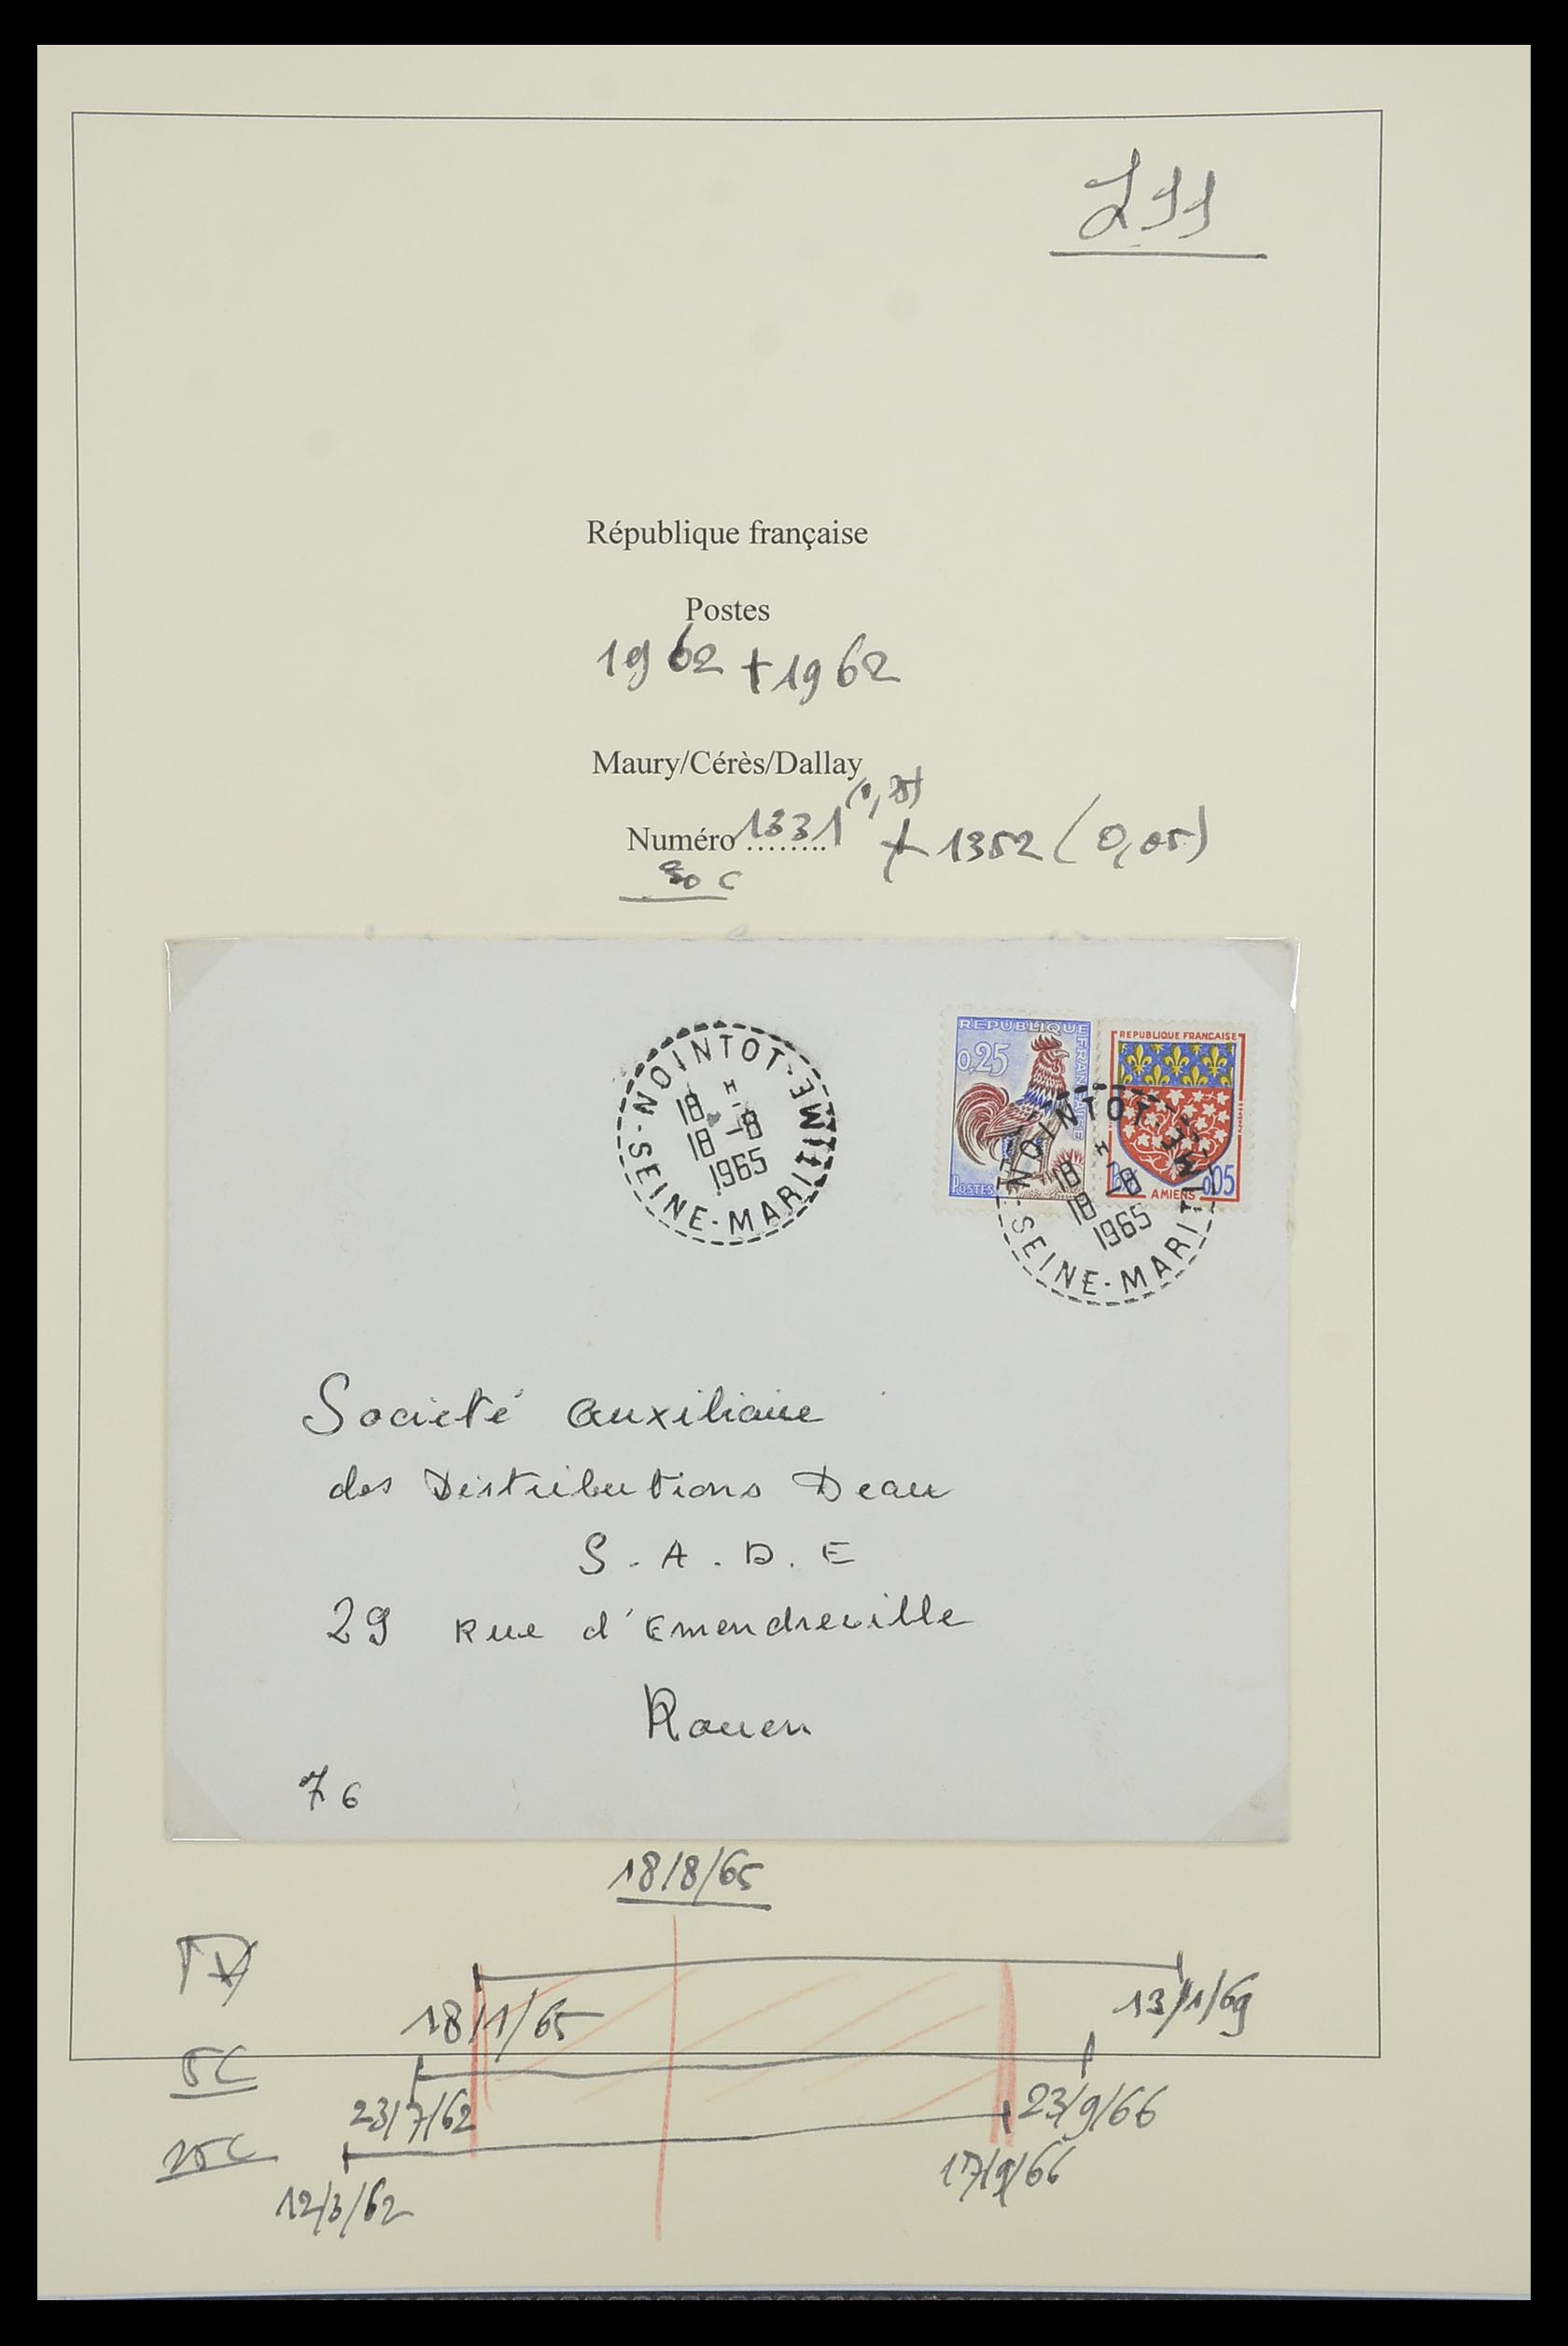 République française
Postes
1962 + 1962
Maury/Cérès/Dallay
Numéro 1331 + 1352 (0,05)
30 c
NOINTOT-SEINE-MARITIME
18 H
18 -8
1965
REPUBLIQUE FRANÇAISE
0,25
POSTES
REPUBLIQUE FRANÇAISE
0,05
AMIENS
NOINTOT-SEINE-MARITIME
18 H
18 -8
1965
Societé Auxiliaire
des Distributions Deau
S. A. D. E
29 Rue d'Emendreville
Rouen
76
18/8/65
18/1/65
13/1/69
5C
23/7/62
23/9/66
25C
12/3/62
17/9/66